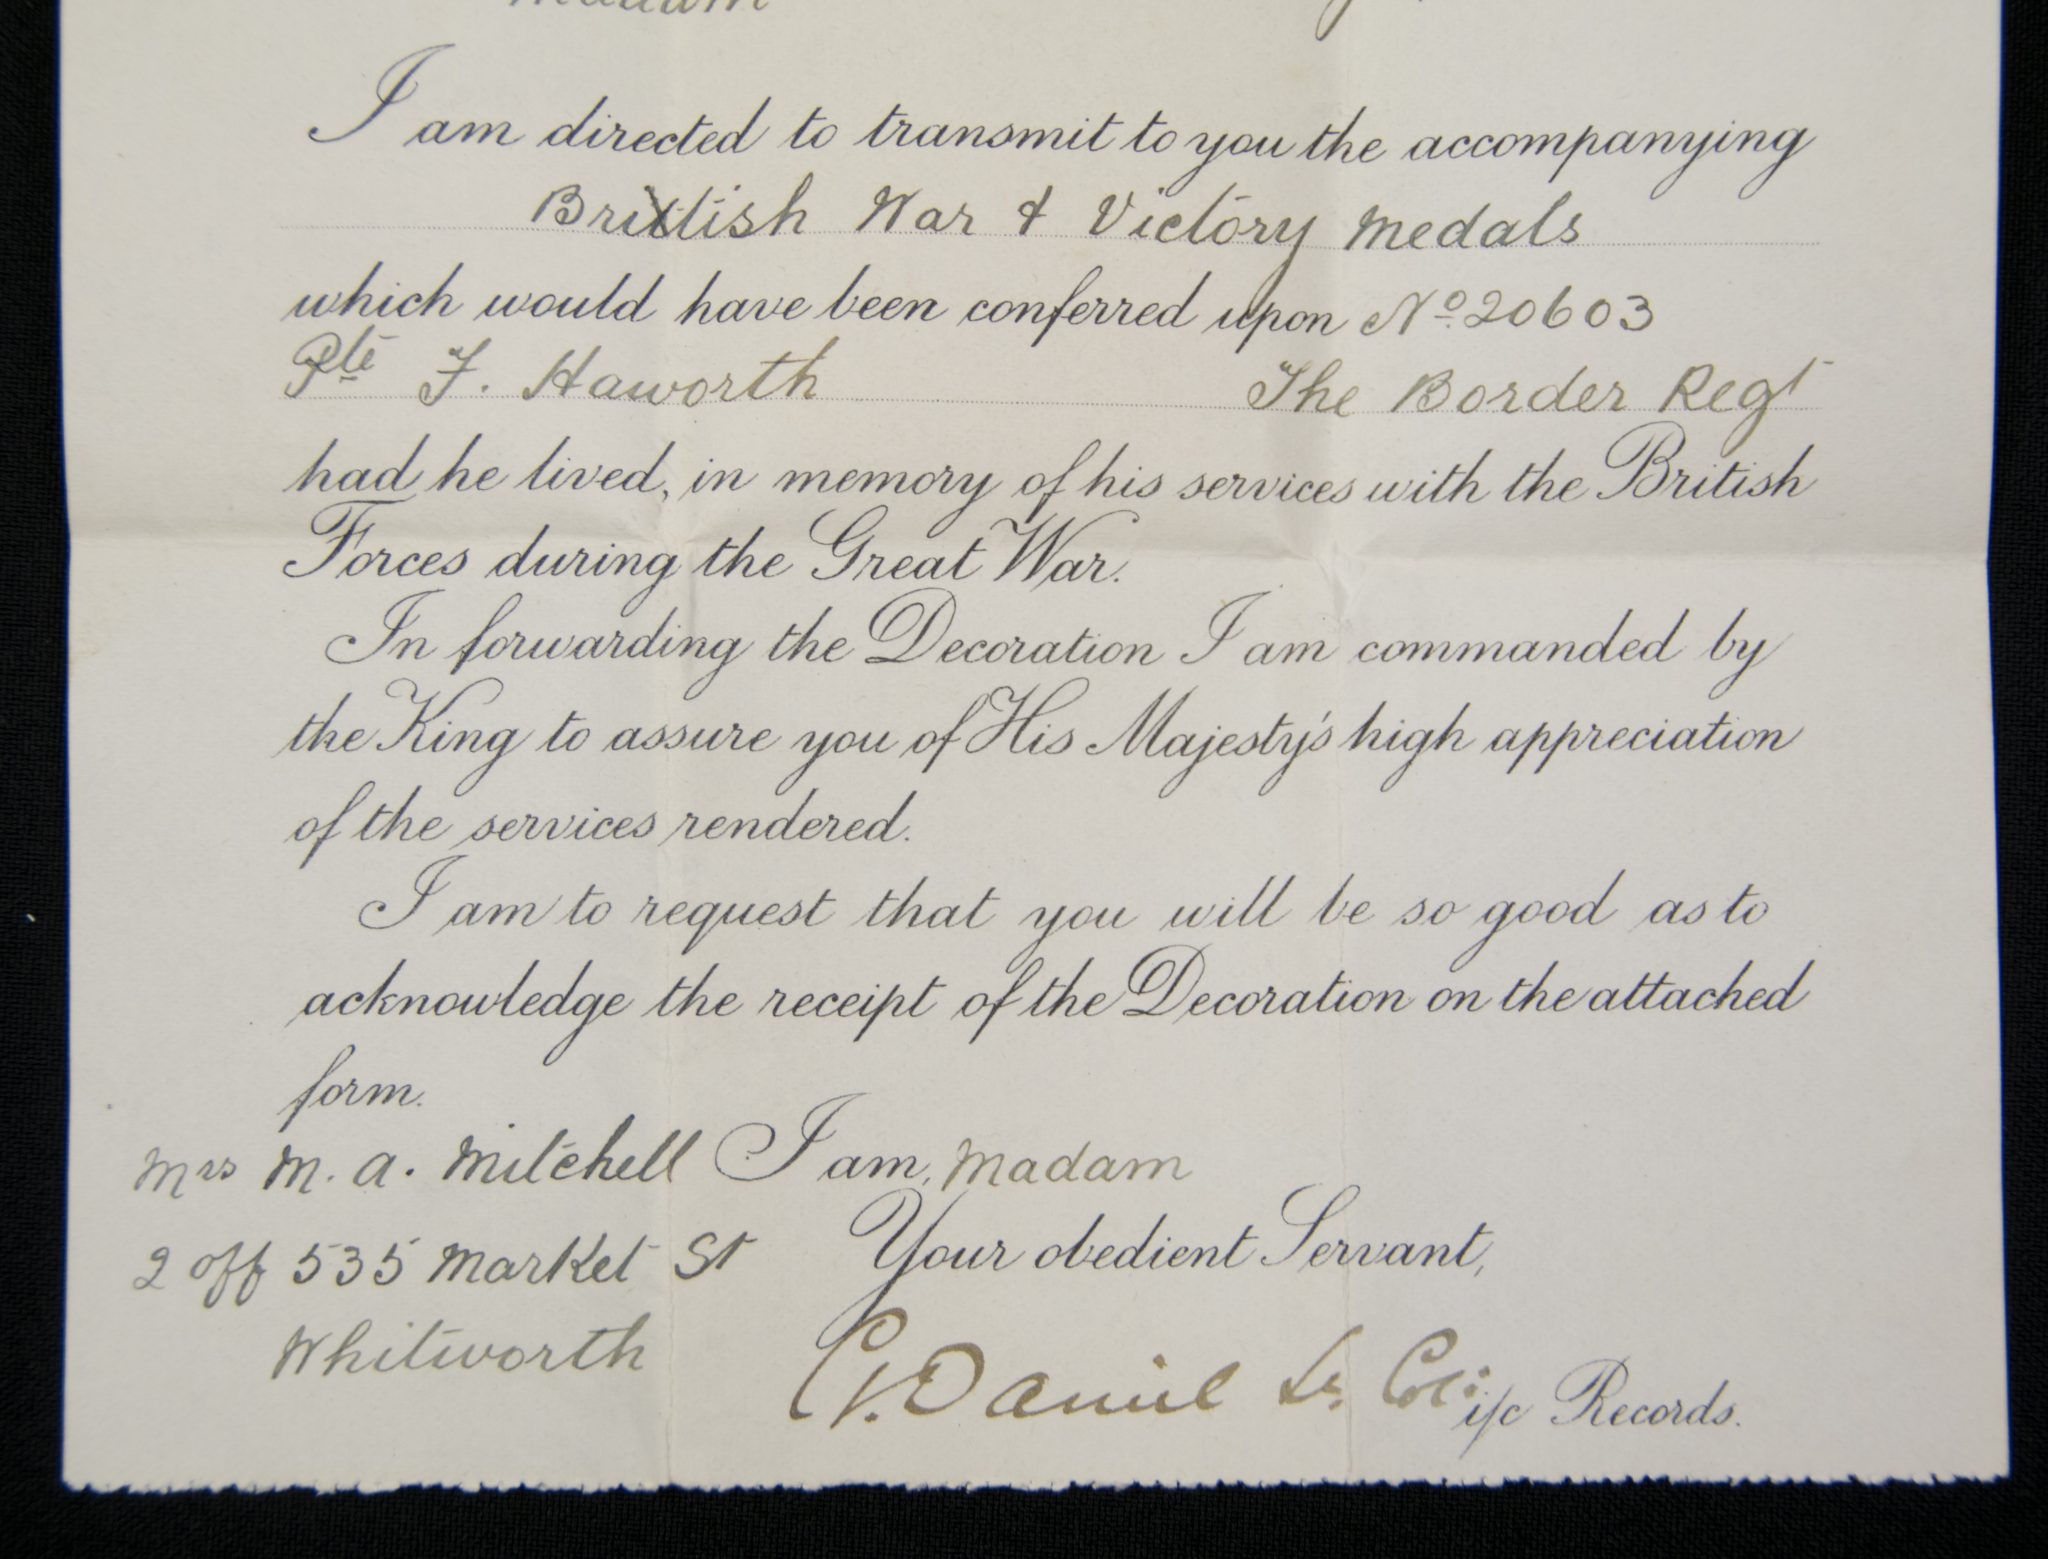 Madam
I am directed to transmit to you the accompanying
British War & Victory Medals
which would have been conferred upon Nº 20603
Pte F. Haworth The Border Regt
had he lived, in memory of his services with the British
Forces during the Great War.
In forwarding the Decoration I am commanded by
the King to assure you of His Majesty's high appreciation
of the services rendered.
I am to request that you will be so good as to
acknowledge the receipt of the Decoration on the attached
form.
Mrs M. A. Mitchell I am, Madam
2 off 535 Market St Your obedient Servant,
Whitworth
Daniel Lt. Col: i/c Records.